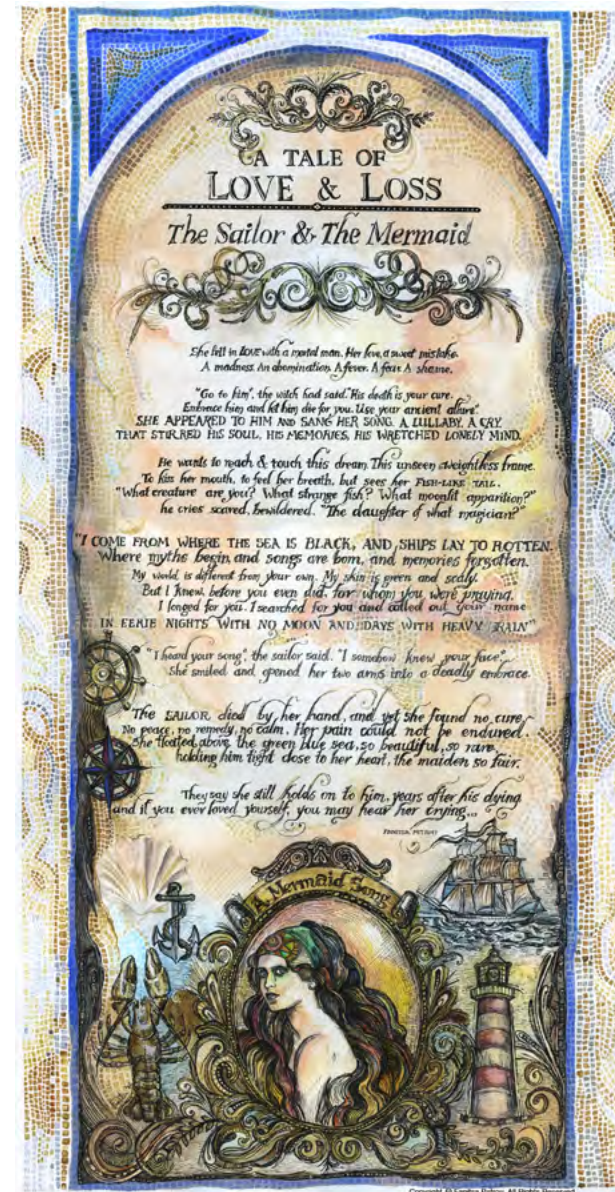 A TALE OF
LOVE & LOSS
The Sailor & The Mermaid
She fell in LOVE with a mortal man. Her love, a sweet mistake.
A madness. An abomination. A fever. A fear. A shame.
"Go to him", the witch had said. "His death is your cure.
Embrace him and let him die for you. Use your ancient allure".
SHE APPEARED TO HIM AND SANG HER SONG. A LULLABY. A CRY.
THAT STIRRED HIS SOUL, HIS MEMORIES, HIS WRETCHED LONELY MIND.
He wants to reach & touch this dream. This unseen weightless frame.
To kiss her mouth, to feel her breath, but sees her FISH-LIKE TAIL.
"What creature are you? What strange fish? What moonlit apparition?"
he cries scared, bewildered. "The daughter of what magician?"
"I COME FROM WHERE THE SEA IS BLACK, AND SHIPS LAY TO ROTTEN.
Where myths begin and songs are born, and memories forgotten.
My world is different from your own. My skin is green and scaly.
But I knew, before you even did, for whom you were praying.
I longed for you. I searched for you and called out your name
IN EERIE NIGHTS WITH NO MOON AND DAYS WITH HEAVY RAIN"
"I heard your song", the sailor said. "I somehow knew your face".
She smiled and opened her two arms into a deadly embrace.
The SAILOR died by her hand, and yet she found no cure,
No peace, no remedy, no calm. Her pain could not be endured.
She floated above the green blue sea, so beautiful, so rare,
holding him tight close to her heart, the maiden so fair.
They say she still holds on to him, years after his dying
and if you ever loved yourself, you may hear her crying...
A Mermaid Song